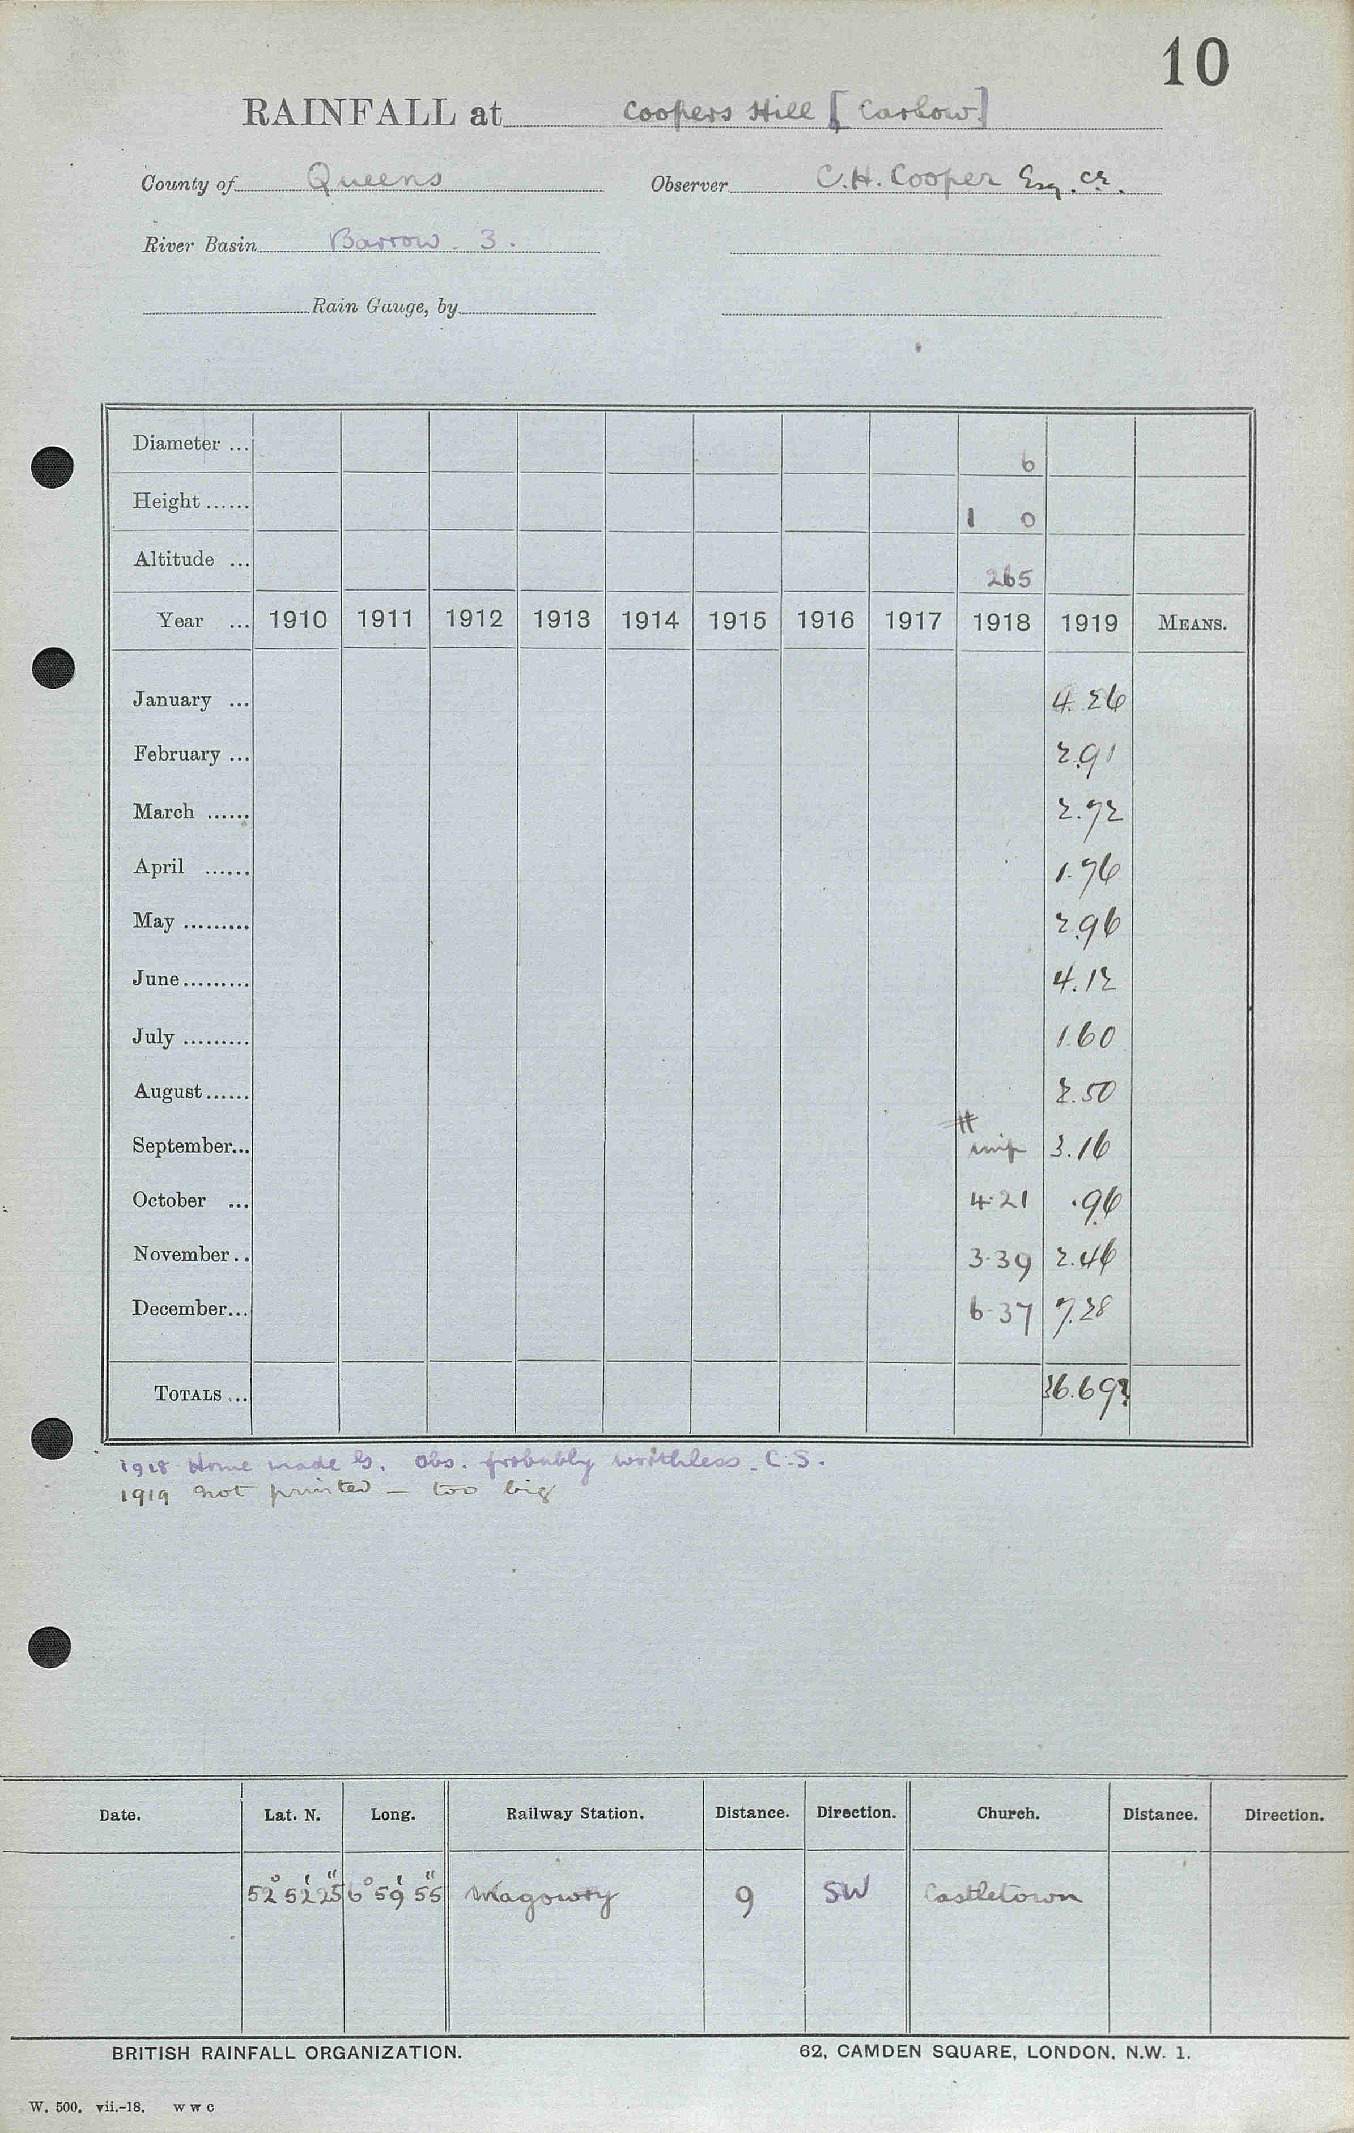 10
RAINFALL at Coopers Hill [Carlow]
County of Queens Observer C.H. Cooper Esq. C.E.
River Basin Barrow. 3.
Rain Gauge, by
Diameter ... 6
Height ...... 1 0
Altitude ... 265
Year ... 1910 1911 1912 1913 1914 1915 1916 1917 1918 1919 MEANS.
January ... 4.26
February ... 2.91
March ...... 2.72
April ...... 1.76
May ......... 2.96
June ......... 4.12
July ......... 1.60
August ...... 2.50
#
September... 3.16
October ... 4.21 .96
November.. 3.39 2.46
December... 6.37 7.28
TOTALS ... 36.69?
1918 Home made G. Obs. probably worthless. C.S.
1919 not printed - too big
Date. Lat. N. Long. Railway Station. Distance. Direction. Church. Distance. Direction.
52° 52' 25" 6° 59' 55" Magowry 9 SW Castletown
BRITISH RAINFALL ORGANIZATION. 62, CAMDEN SQUARE, LONDON, N.W. 1.
W. 500. vii.-18. W W C